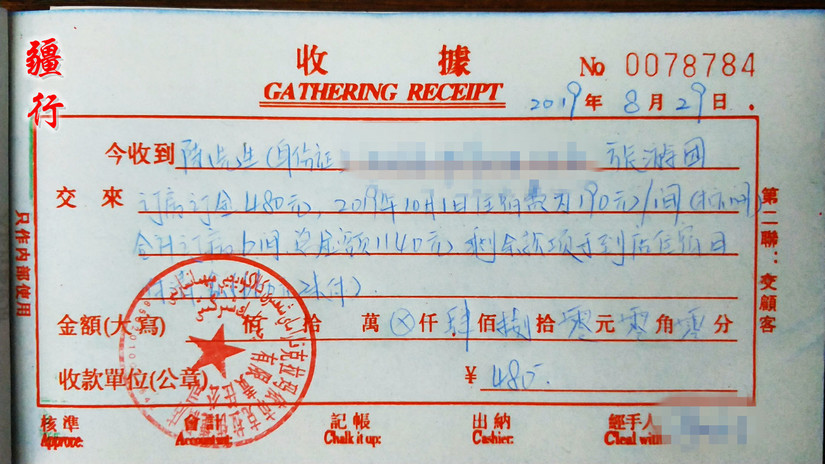 疆行
收據
GATHERING RECEIPT
No 0078784
2019年8月29日.
今收到 陈先生(身份证 旅游团
交來 订房订金480元,2019年10月1日住宿费为190元/间(标间)
合计订房6间 总金额1140元,剩余款项于到店住宿日
金額(大寫) 佰 拾 萬 ⊗ 仟 肆 佰 捌 拾 零 元 零 角 零 分
收款單位(公章) ¥ 480.
核準 會計 記帳 出納 經手人
Approve: Accountant: Chalk it up: Cashier: Cleal with
只作內部使用
第二聯:交顧客